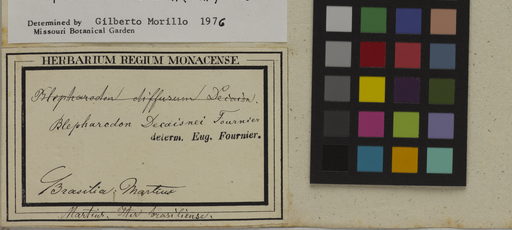 Determined by Gilberto Morillo 1976
Missouri Botanical Garden
HERBARIUM REGIUM MONACENSE.
Blepharodon diffusum Decaisn.
Blepharodon Decaisnei Fournier
determ. Eug. Fournier.
Brasilia; Martius
Martius, Iter brasiliense.